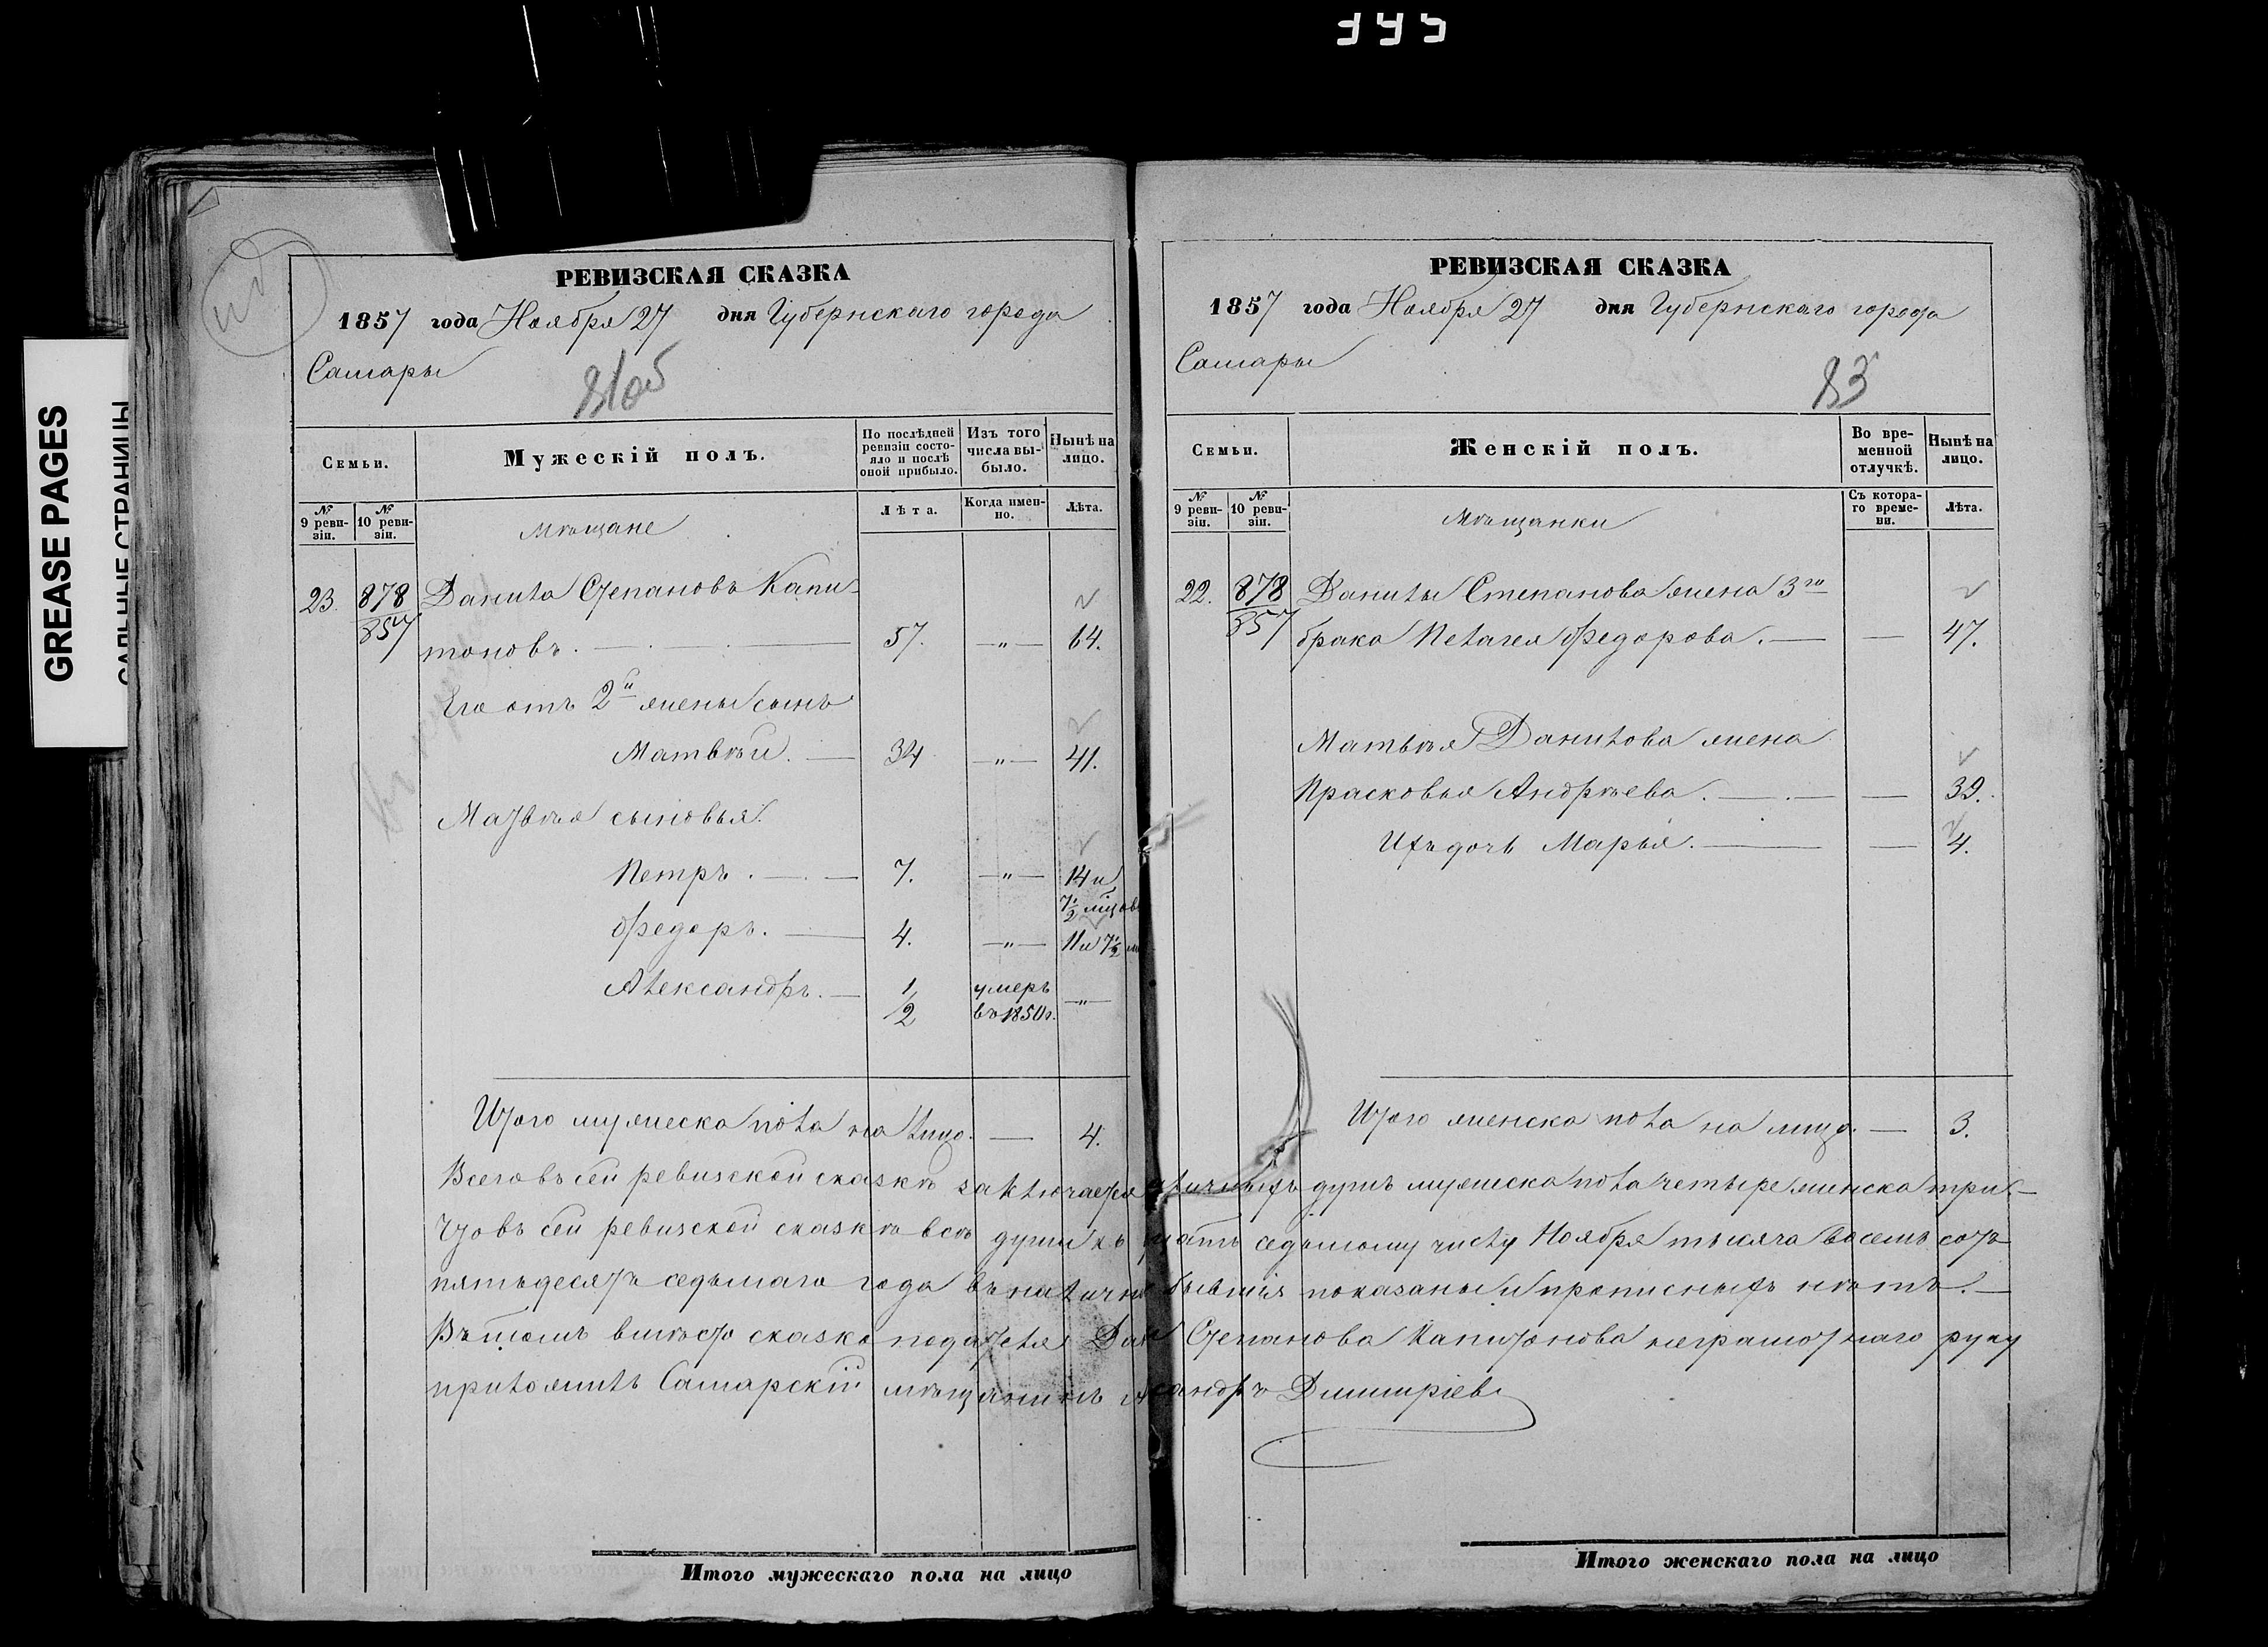 ЗУ5
GREASE PAGES
САЛЬНЫЕ СТРАНИЦЫ
РЕВИЗСКАЯ СКАЗКА
1857 года Ноября 27 дня Губернскаго города
Самары
Семьи.
Мужескій полъ.
По послѣдней ревизіи состояло и послѣ оной прибыло.
Изъ того числа выбыло.
Нынѣ на лицо.
№ 9 ревизіи.
№ 10 ревизіи.
Лѣта.
Когда именно.
Лѣта.
Мѣщане
23. 878 Данила Степановъ Капи-
857 тоновъ. 57. —„— 64.
Его отъ 2й жены сынъ
Матвѣй. — 34 —„— 41.
Матвѣя сыновья.
Петръ. — 7. —„— 14 и
7½ мцовъ
Федоръ. — 4. —„— 11 и 7½ м
Александръ. — 1/2 умеръ въ 1850г. —„—
Итого мужеска пола на лицо. — 4.
РЕВИЗСКАЯ СКАЗКА
1857 года Ноября 27 дня Губернскаго города
Самары
83
Семьи.
Женскій полъ.
Во временной отлучкѣ.
Нынѣ на лицо.
№ 9 ревизіи.
№ 10 ревизіи.
Съ котораго времени.
Лѣта.
Мѣщанки
22. 878 Данилы Степанова жена 3го
857 брака Пелагея Федорова. — — 47.
Матвѣя Данилова жена
Прасковья Андрѣева. — — 39.
Ихъ дочь Марья. — — 4.
Итого женска пола на лицо. — 3.
Всего въ сей ревизской сказкѣ заключается наличныхъ душъ мужеска пола четыре женска три. —
Что въ сей ревизской сказкѣ всѣ души къ двадцать седьмому числу Ноября тысяча восемь сотъ
пятьдесятъ седьмаго года въ наличнос бывшія показаны и прописныхъ нѣтъ. —
Въ томъ вмѣсто сказко подателя Дан Степанова Капитонова неграмотнаго руку
приложилъ Самарскій мѣщанинъ Александръ Димитріев
Итого мужескаго пола на лицо
Итого женскаго пола на лицо